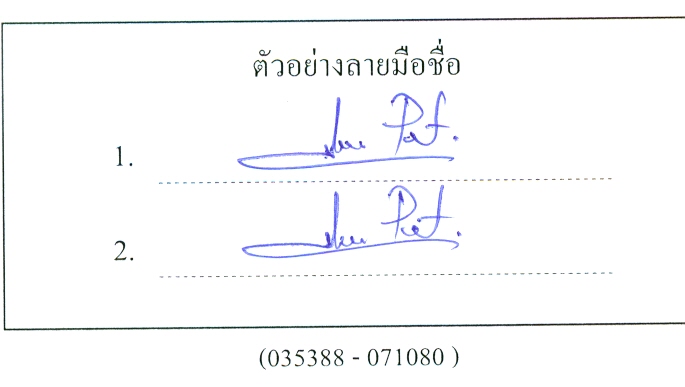 ตัวอย่างลายมือชื่อ
1.
2.
(035388 - 071080 )